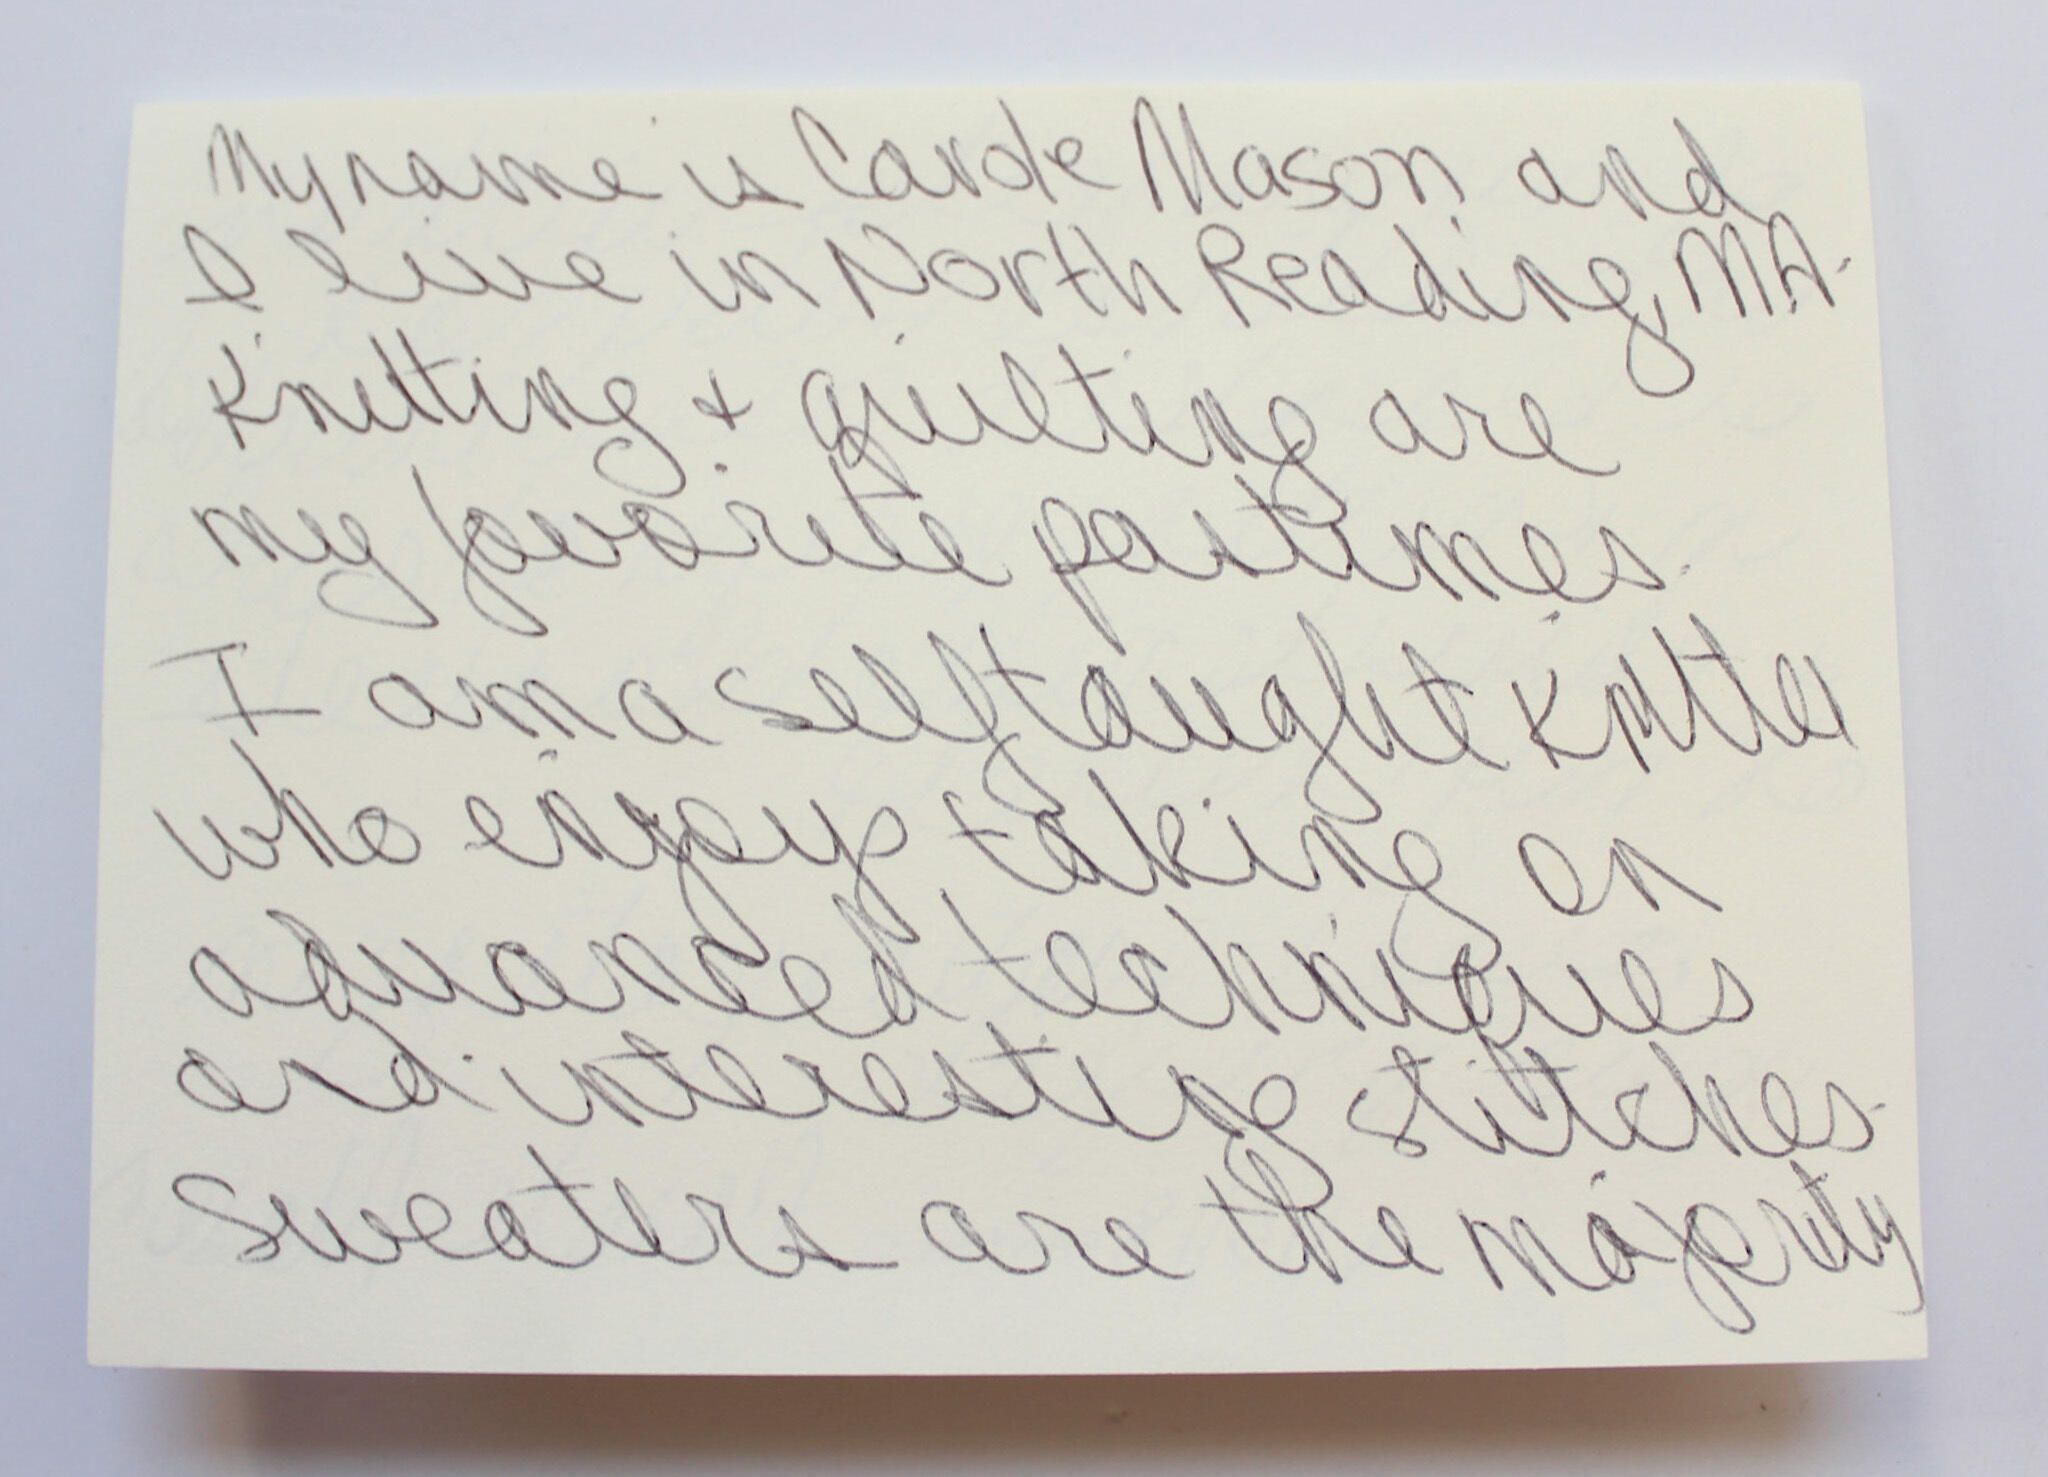 My name is Carole Mason and
I live in North Reading, MA.
Knitting + quilting are
my favorite pastimes.
I am a self taught knitter
who enjoys taking on
advanced techniques
and interesting stitches.
Sweaters are the majority